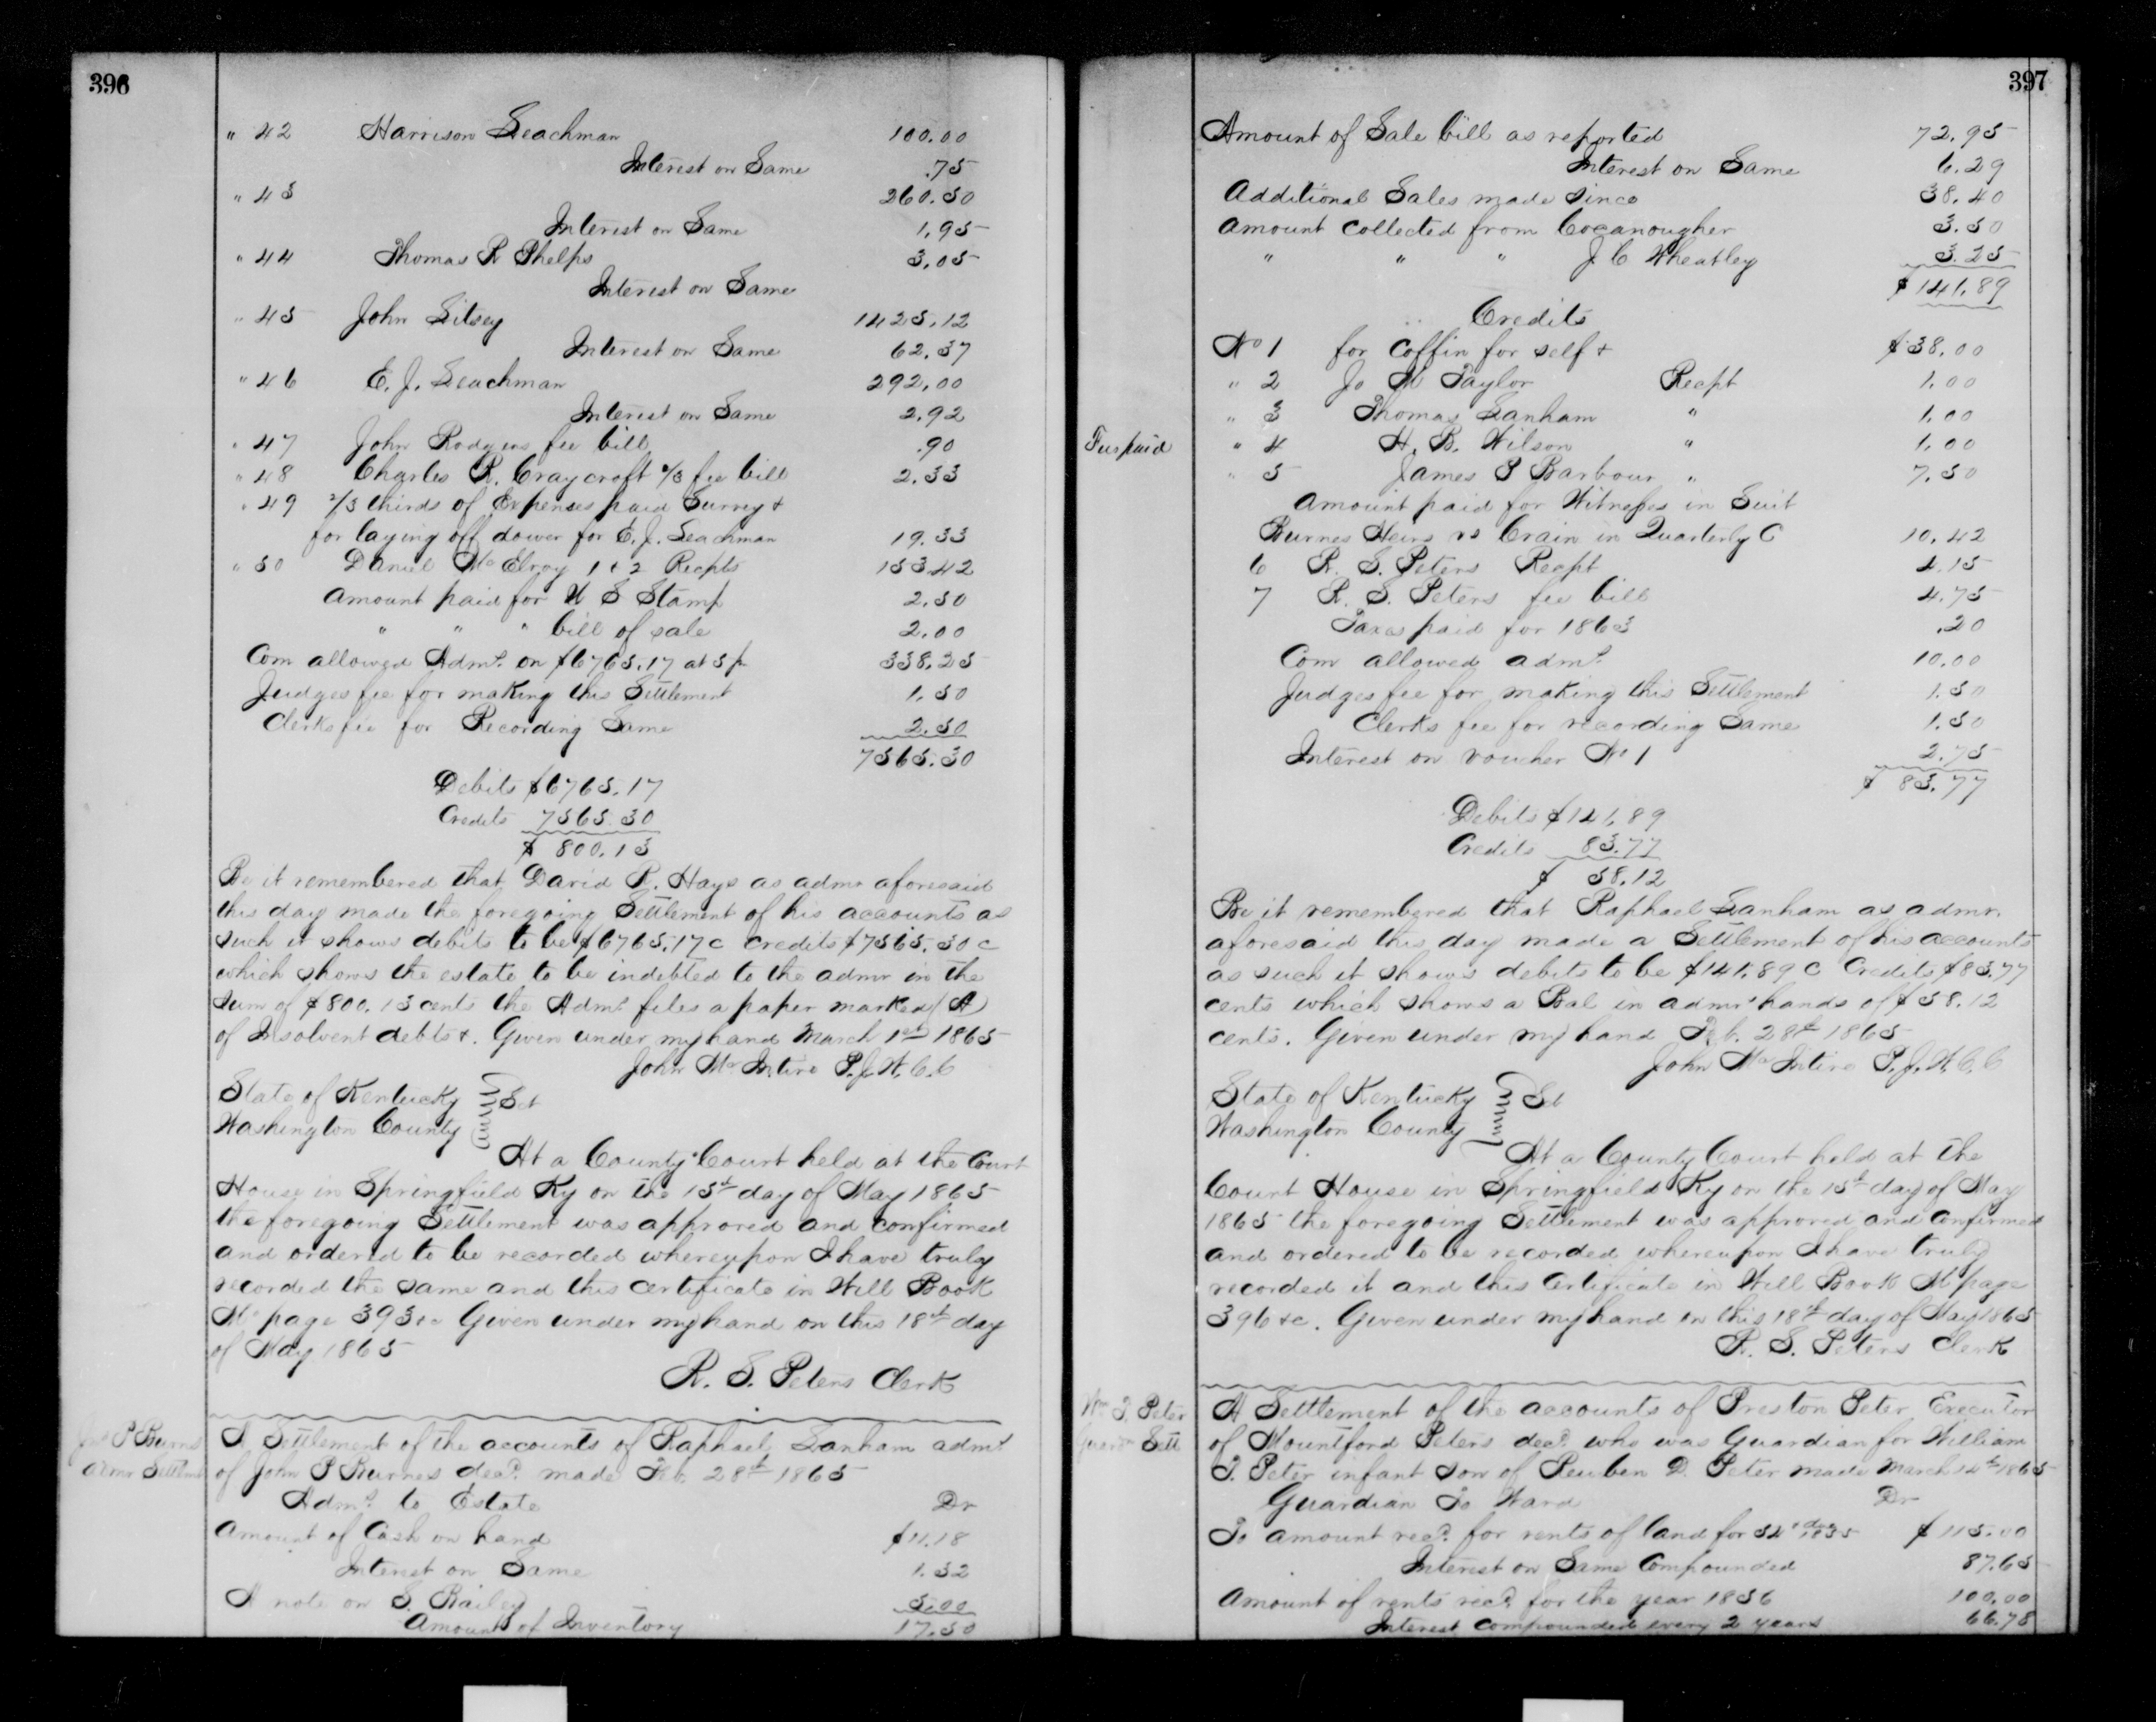 396
" 42 Harrison Leachman 100.00
Interest on Same .75
" 43 260.50
Interest on Same 1.95
" 44 Thomas R Phelps 3.05
Interest on Same
" 45 John Litsey 1425.12
Interest on Same 62.37
" 46 E. J. Leachman 292.00
Interest on Same 2.92
" 47 John Rodgers fee bill .90
" 48 Charles R. Craycroft 2/3 fee bill 2.33
" 49 2/3 thirds of Expenses paid Survey &
for laying off dower for E. J. Leachman 19.33
" 50 Daniel McElroy 1 & 2 Recpts 153.42
Amount paid for U S Stamp 2.50
" " " bill of sale 2.00
Com allowed Admr. on $6765.17 at 5 pr 338.25
Judges fee for making this Settlement 1.50
Clerks fee for Recording Same 2.50
7565.30
Debits $6765.17
Credits 7565.30
$ 800.13
Be it remembered that David R. Hays as admr aforesaid
this day made the foregoing Settlement of his accounts as
such it shows debits to be $6765.17 c credits $7565.30 c
which shows the estate to be indebted to the admr in the
Sum of $800.13 cents the Admr files a paper marked (A)
of Insolvent debts &. Given under my hand March 1st 1865
John McIntire P.J.W.C.C
State of Kentucky } Sct
Washington County }
At a County Court held at the Court
House in Springfield Ky on the 15th day of May 1865
the foregoing Settlement was approved and confirmed
and ordered to be recorded whereupon I have truly
recorded the same and this certificate in Will Book
M page 393 &c Given under my hand on this 18th day
of May 1865
R. S. Peters Clerk
Jno P Burns
Admr Settlmt
A Settlement of the accounts of Raphael Lanham admr
of John P Burnes decd. made Feb. 28th 1865
Admr to Estate Dr
Amount of Cash on hand $11.18
Interest on Same 1.32
A note on S. Bailey 5.00
Amount of Inventory 17.50
397
Amount of Sale bill as reported 72.95
Interest on Same 6.29
Additional Sales made Since 38.40
Amount collected from Cocanougher 3.50
" " " J. C Wheatley 3.25
$141.89
Credits
No 1 for Coffin for self & $38.00
" 2 Jo M Taylor Recpt 1.00
" 3 Thomas Lanham " 1.00
" 4 H. B. Wilson " 1.00
Fee paid
" 5 James P Barbour " 7.50
Amount paid for Witnesses in Suit
Burnes Heirs vs Crain in Quarterly C 10.42
6 R. S. Peters Recpt 4.15
7 R. S. Peters fee bill 4.75
Taxes paid for 1863 .20
Com allowed admr. 10.00
Judges fee for making this Settlement 1.50
Clerks fee for recording Same 1.50
Interest on voucher No 1 2.75
$ 83.77
Debits $141.89
Credits 83.77
$ 58.12
Be it remembered that Raphael Lanham as admr.
aforesaid this day made a Settlement of his accounts
as such it shows debits to be $141.89 C Credits $83.77
cents which shows a Bal in admrs hands of $58.12
cents. Given under my hand Feb. 28th 1865
John McIntire P.J.W.C.C
State of Kentucky } Sct
Washington County }
At a County Court held at the
Court House in Springfield Ky on the 15th day of May
1865 the foregoing Settlement was approved and Confirmed
and ordered to be recorded whereupon I have truly
recorded it and this Certificate in Will Book M page
396 &c. Given under my hand on this 18th day of May 1865
R. S. Peters Clerk
Wm T. Peter
Guardn Sett
A Settlement of the accounts of Preston Peter Executor
of Mountford Peters decd. who was Guardian for William
T. Peter infant son of Reuben D. Peter made March 14th 1865
Guardian To Ward Dr
To amount recd. for rents of land for 54 & 1855 $115.00
Interest on Same Compounded 87.65
Amount of rents recd. for the year 1856 100.00
Interest compounded every 2 years 66.78